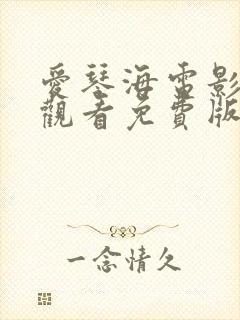 愛琴海電影
觀看免費版
一念情久